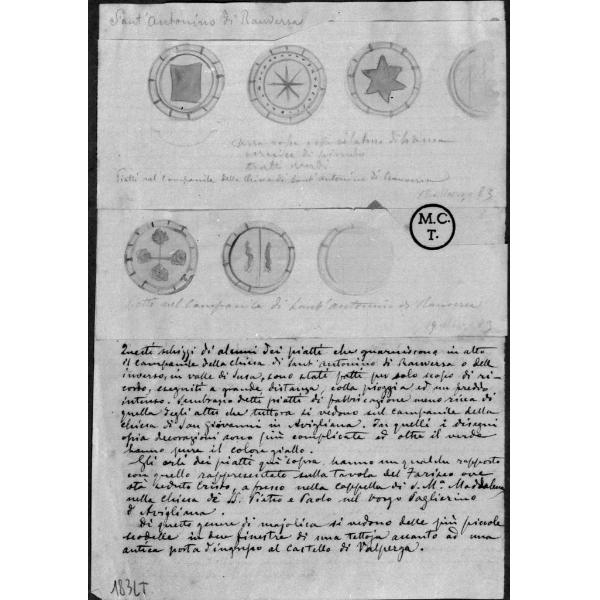 Sant'Antonino di Ranversa
terra rossa
vernice di piombo
tratti verdi
Piatti nel Campanile della Chiesa di Sant'Antonino di Ranversa
83
M.C.
T.
Piatti nel Campanile di Sant'Antonino di Ranversa
19
Questi schizzi di alcuni dei piatti che guarniscono in alto
il campanile della chiesa di Sant'Antonino di Ranversa o dell'
inverso, in valle di Susa, sono stati fatti per solo scopo di ri-
cordo, eseguiti a grande distanza, colla pioggia ed un freddo
intenso. Sembrano detti piatti di fabbricazione meno ricca di
quella degli altri che tuttora si vedono sul campanile della
chiesa di San Giovanni in Avigliana. In quelli i disegni
ossia decorazioni sono più complicate ed oltre il verde
hanno pure il colore giallo.
Gli orli dei piatti qui sopra, hanno un qualche rapporto
con quello rappresentato sulla tavola del Fariseo ove
sta seduto Cristo, a fresco nella cappella di S. Ma. Maddalena
nella chiesa di S. Pietro e Paolo nel borgo Paglierino
d'Avigliana.
Di questo genere di majolica si vedono delle più piccole
scodelle in due finestre di una tettoja accanto ad una
antica porta d'ingresso al Castello di Valperga.
183LT